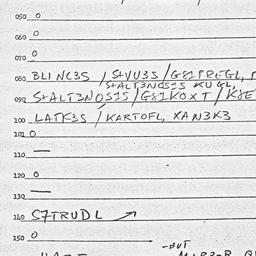 050 0
060 0
070 0
080 BLINC3S / S+VU3S / G81PREGL,
S+ALT3NOS1S KUGL,
090 S+ALT3NOS1S / G81KOXT / K8E
100 LATK3S / KARTOFL, XAN3K3
101 0
110 —
120 0
130 —
140 S7TRUDL
150 0
-BUT